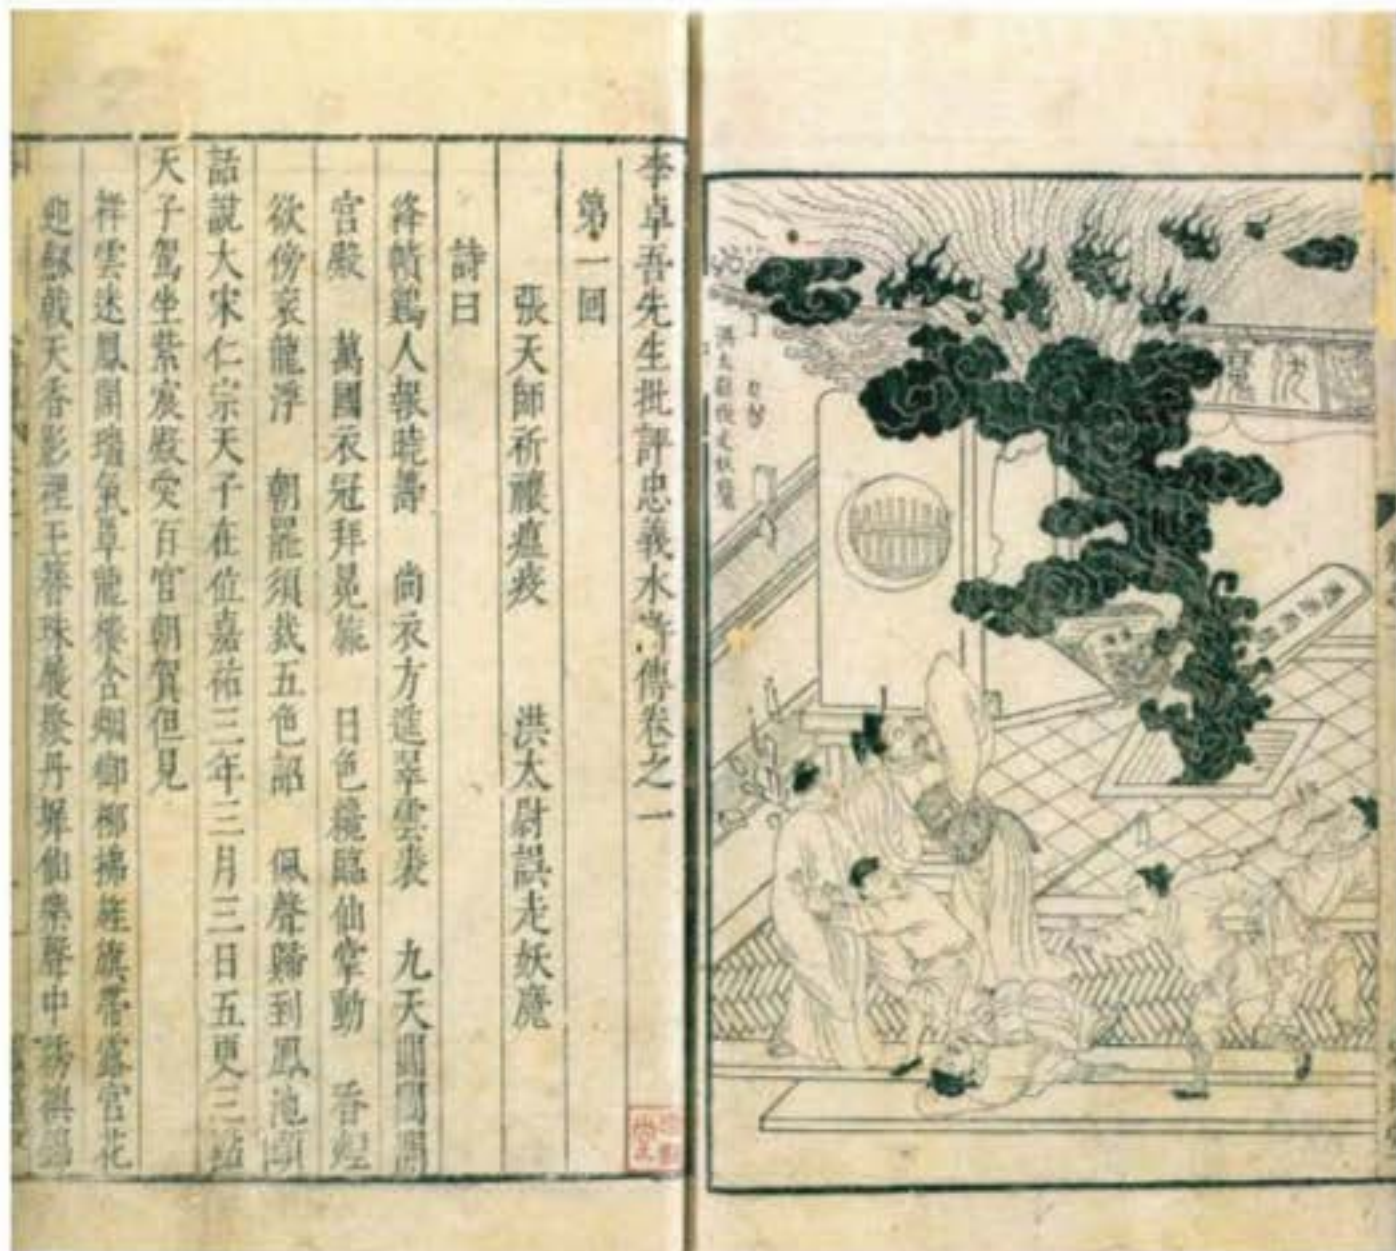 伏魔
洪太尉悞走妖魔
李卓吾先生批評忠義水滸傳卷之一
第一回
張天師祈禳瘟疫　洪太尉誤走妖魔
詩曰
絳幘鷄人報曉籌　尚衣方進翠雲裘　九天閶闔開
宮殿　萬國衣冠拜冕旒　日色纔臨仙掌動　香烟
欲傍袞龍浮　朝罷須裁五色詔　佩聲歸到鳳池頭
話說大宋仁宗天子在位嘉祐三年三月三日五更三點
天子駕坐紫宸殿受百官朝賀但見
祥雲迷鳳閣瑞氣罩龍樓含烟御柳拂旌旗帶露宮花
迎劍戟天香影裡玉簪珠履聚丹墀仙樂聲中綉襖錦